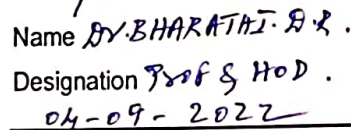 Name Dr. BHARATHI. D.R.
Designation Prof & HOD.
04-09-2022